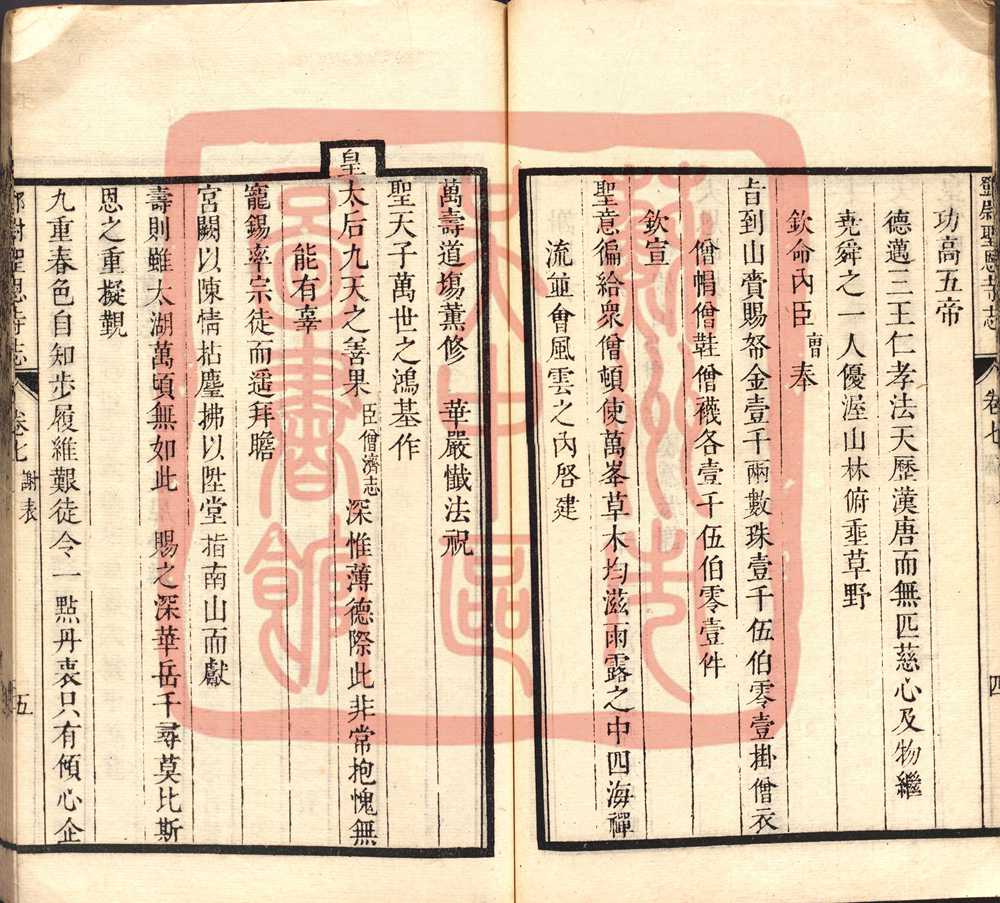 鄧尉聖恩寺志 卷七 四
功高五帝
德邁三王仁孝法天歷漢唐而無匹慈心及物繼
堯舜之一人優渥山林俯埀草野
欽命內臣曹奉
旨到山賚賜帑金壹千兩數珠壹千伍伯零壹掛僧衣
僧帽僧鞋僧襪各壹千伍伯零壹件
欽宣
聖意徧給衆僧頓使萬峯草木均滋雨露之中四海禪
流並會風雲之內啓建
萬壽道塲薰修 華嚴懺法祝
聖天子萬世之鴻基作
皇太后九天之善果臣僧濟志深惟薄德際此非常抱愧無
能有辜
寵錫率宗徒而遥拜瞻
宮闕以陳情拈麈拂以陞堂指南山而獻
壽則雖太湖萬頃無如此 賜之深華岳千尋莫比斯
恩之重擬覲
九重春色自知步履維艱徒令一點丹衷只有傾心企
鄧尉聖恩寺志 卷七 謝表 五
蘇州市吳中區圖書館